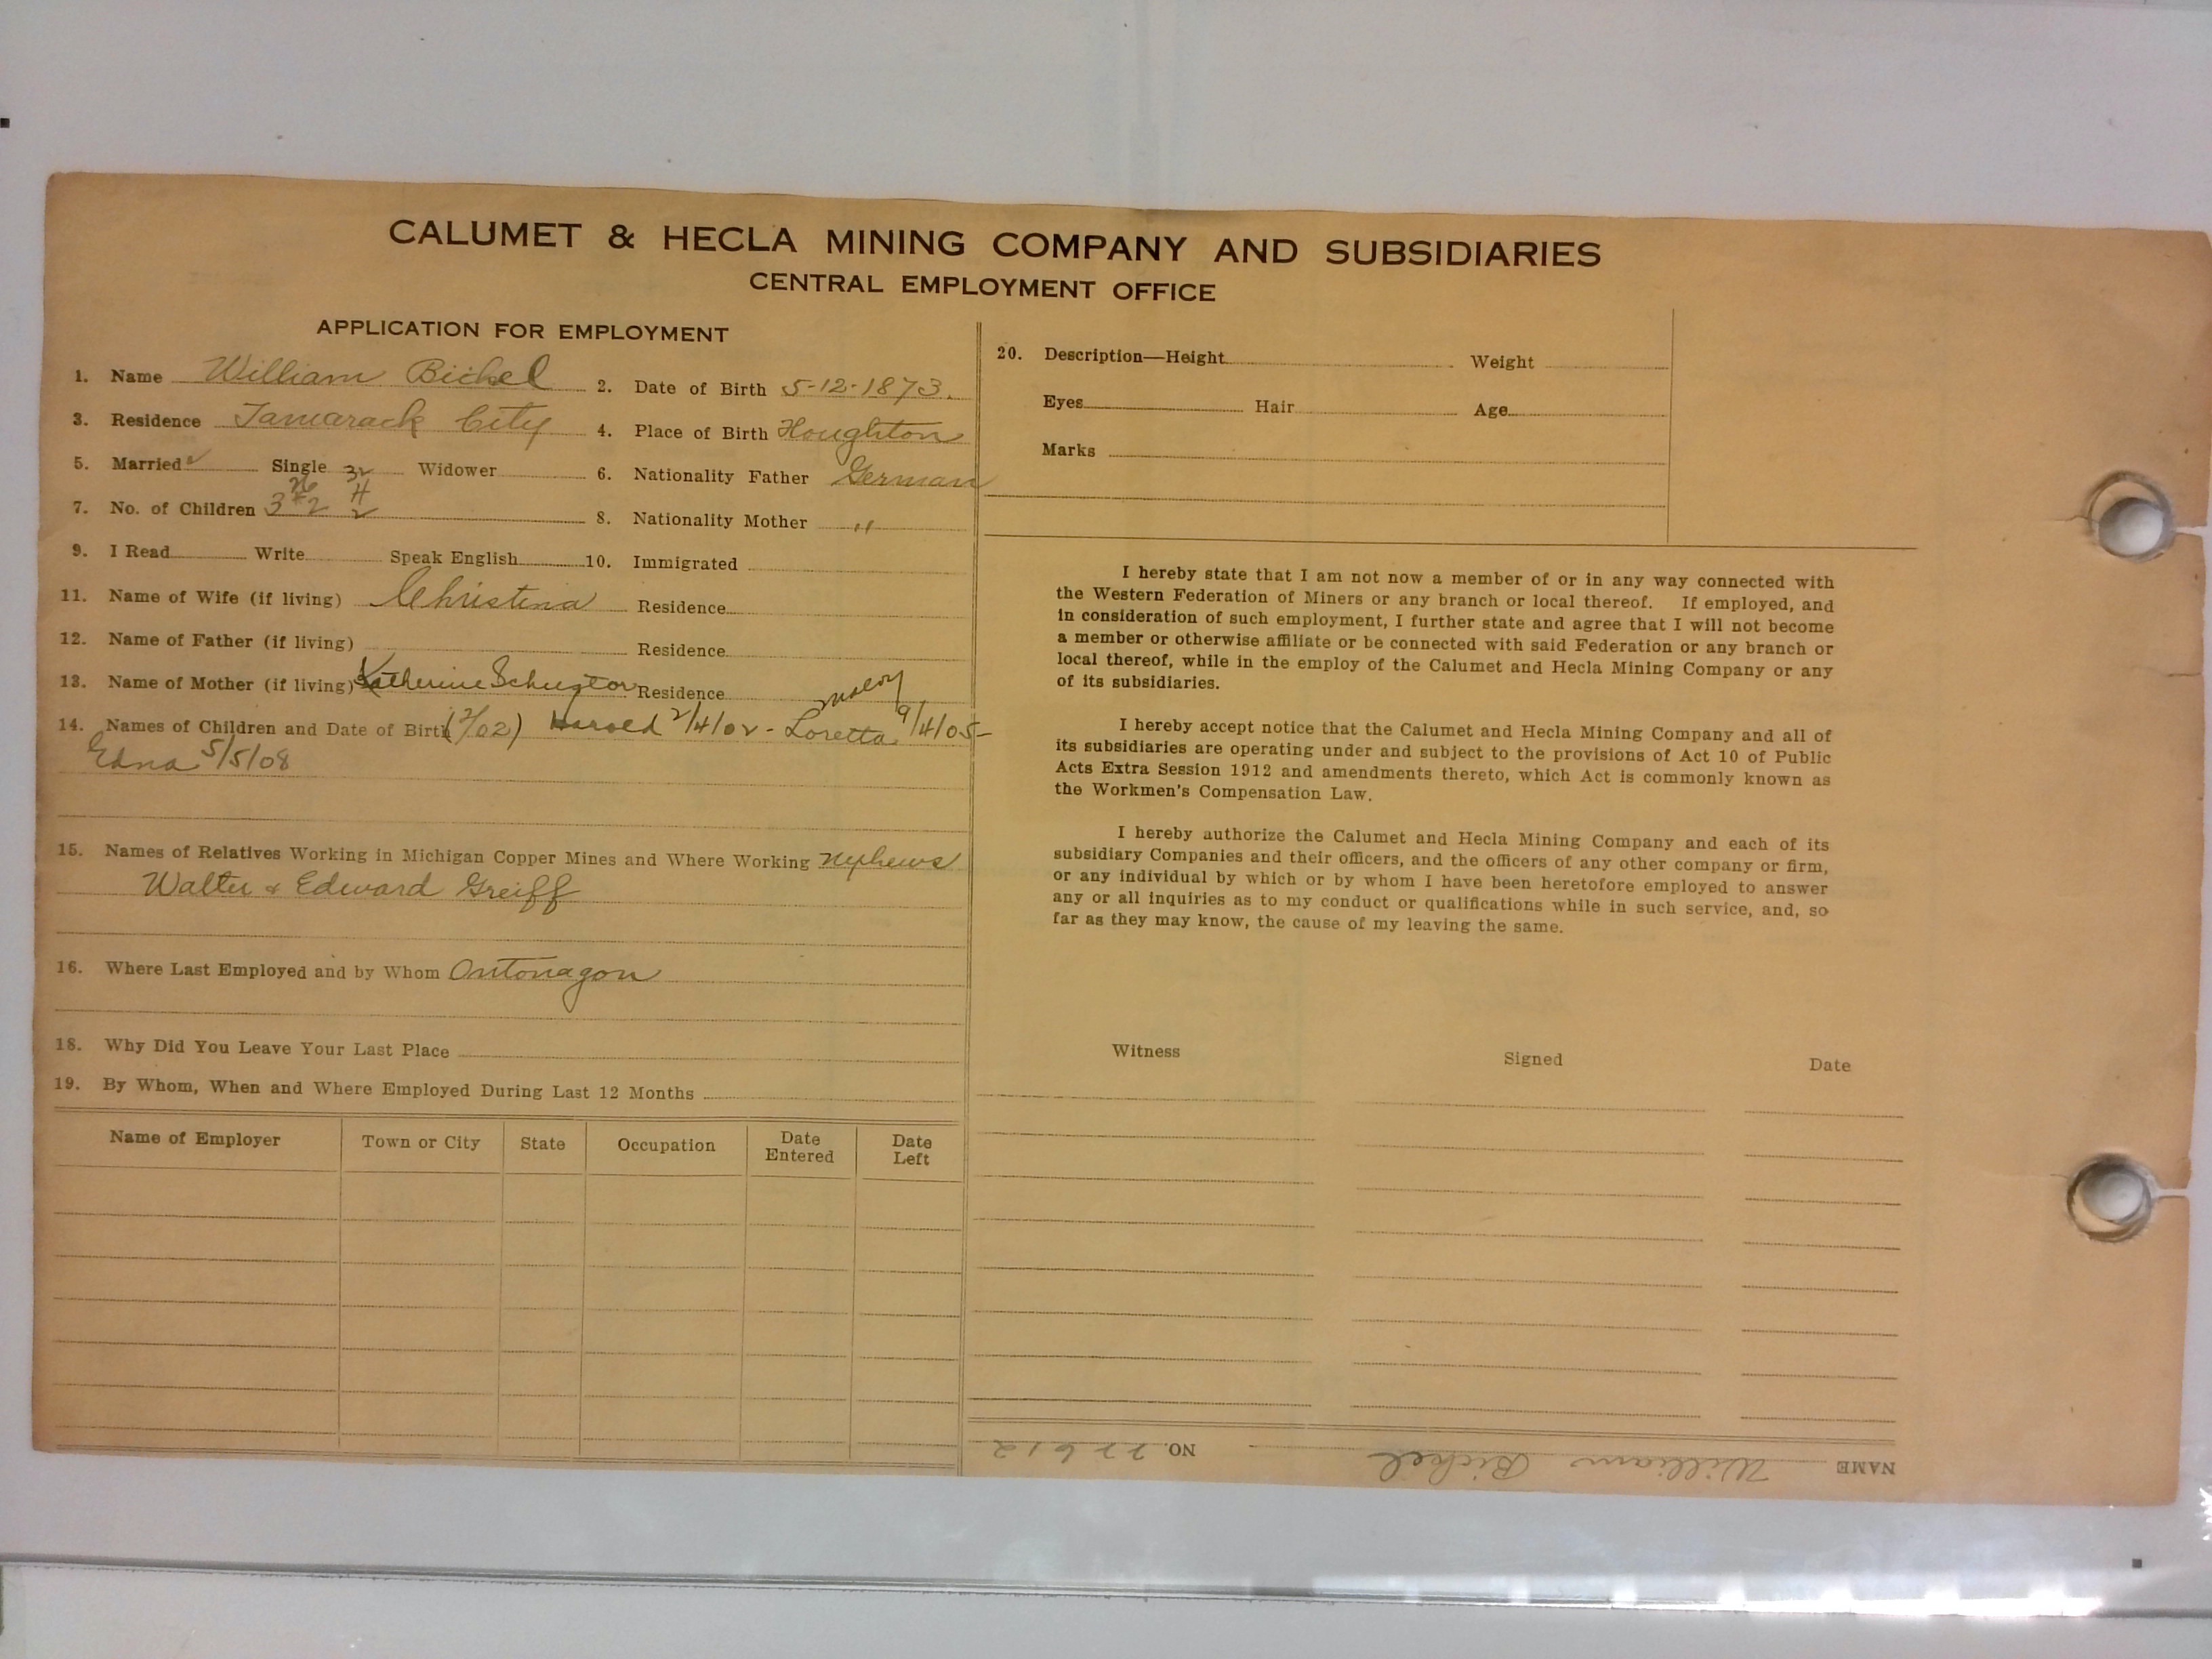 CALUMET & HECLA MINING COMPANY AND SUBSIDIARIES
CENTRAL EMPLOYMENT OFFICE
APPLICATION FOR EMPLOYMENT
1. Name William Bichel 2. Date of Birth 5-12-1873.
3. Residence Tamarack City 4. Place of Birth Houghton
5. Married ✓ Single 32 Widower 6. Nationality Father German
7. No. of Children 3 8. Nationality Mother "
9. I Read Write Speak English 10. Immigrated
11. Name of Wife (if living) Christina Residence
12. Name of Father (if living) Residence
13. Name of Mother (if living) Katherine Residence
14. Names of Children and Date of Birth (2/02) Harold 2/4/02 - Loretta 9/4/05-
Edna 5/5/08
15. Names of Relatives Working in Michigan Copper Mines and Where Working Nephews
Walter & Edward Greiff
16. Where Last Employed and by Whom Ontonagon
18. Why Did You Leave Your Last Place
19. By Whom, When and Where Employed During Last 12 Months
Name of Employer Town or City State Occupation Date Entered Date Left
20. Description—Height Weight
Eyes Hair Age
Marks
I hereby state that I am not now a member of or in any way connected with
the Western Federation of Miners or any branch or local thereof. If employed, and
in consideration of such employment, I further state and agree that I will not become
a member or otherwise affiliate or be connected with said Federation or any branch or
local thereof, while in the employ of the Calumet and Hecla Mining Company or any
of its subsidiaries.
I hereby accept notice that the Calumet and Hecla Mining Company and all of
its subsidiaries are operating under and subject to the provisions of Act 10 of Public
Acts Extra Session 1912 and amendments thereto, which Act is commonly known as
the Workmen's Compensation Law.
I hereby authorize the Calumet and Hecla Mining Company and each of its
subsidiary Companies and their officers, and the officers of any other company or firm,
or any individual by which or by whom I have been heretofore employed to answer
any or all inquiries as to my conduct or qualifications while in such service, and, so
far as they may know, the cause of my leaving the same.
Witness Signed Date
NAME William Bichel NO. 22612